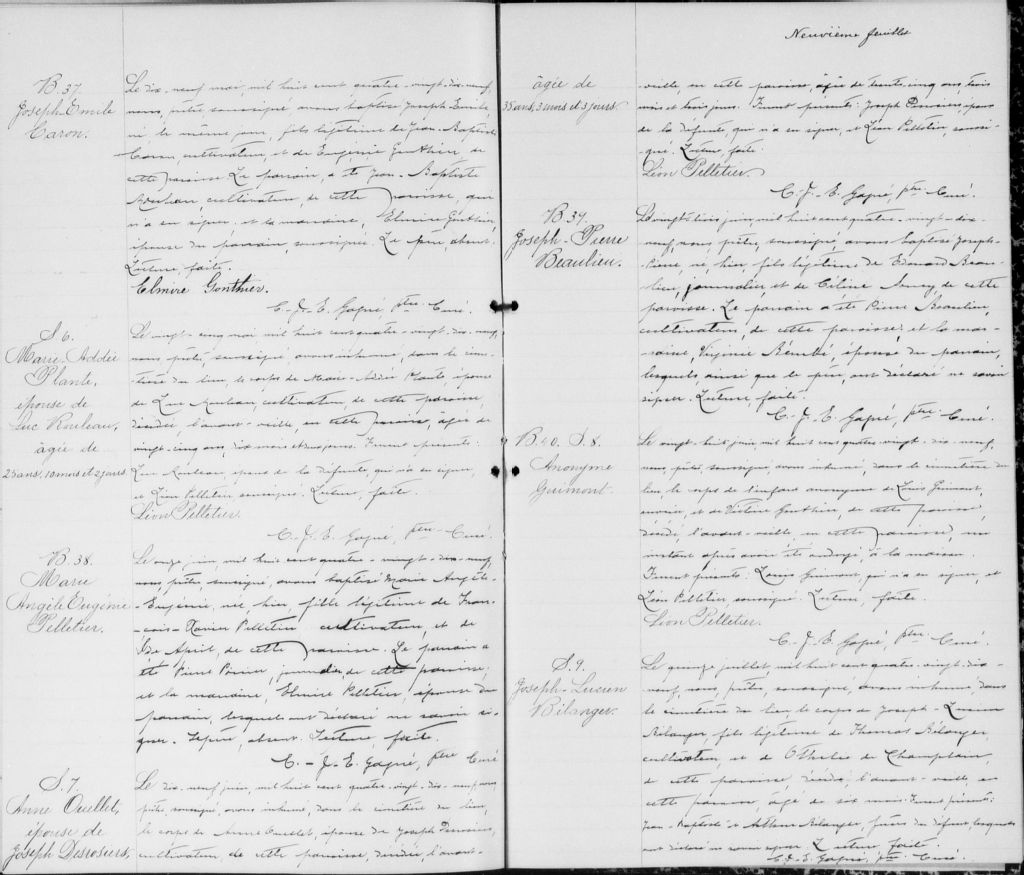 B. 37.
Joseph-Emile
Caron.
Le dix-neuf mai, mil huit cent quatre-vingt-dix-neuf,
nous, prêtre soussigné avons baptisé Joseph Emile
né le même jour, fils légitime de Jean-Baptiste
Caron, cultivateur, et de Eugénie Gonthier, de
cette paroisse. Le parrain, a été Jean-Baptiste
cultivateur, de cette paroisse, qui
n'a su signer et la marraine, Elmire Gonthier,
épouse du parrain, soussignée. Le père, absent.
Lecture faite.
Elmire Gonthier.
C.-J.-E. Gagné, ptre Curé.
S. 6.
Marie-Addée
Plante,
épouse de
Luc Rouleau,
âgée de
25 ans, 10 mois et 2 jours.
Le vingt-cinq mai mil huit cent quatre-vingt-dix-neuf,
nous, prêtre, soussigné, avons inhumé, dans le cime-
tière du lieu, le corps de Marie-Addée Plante, épouse
de Luc Rouleau, cultivateur, de cette paroisse,
décédée, l'avant-veille, en cette paroisse, âgée de
vingt-cinq ans, dix mois et deux jours. Furent présents:
Luc Rouleau époux de la défunte, qui n'a su signer,
et Léon Pelletier soussigné. Lecture, faite.
Léon Pelletier.
C.-J.-E. Gagné, ptre Curé.
B. 38.
Marie
Angèle Eugénie
Pelletier.
Le onze juin, mil huit cent quatre-vingt-dix-neuf,
nous, prêtre, soussigné, avons baptisé Marie Angèle-
Eugénie, née, hier, fille légitime de Fran-
çois-Xavier Pelletier cultivateur, et de
April, de cette paroisse. Le parrain a
été Pierre Poirier, journalier, de cette paroisse,
et la marraine, Elmire Pelletier, épouse du
parrain, lesquels ont déclaré ne savoir si-
gner. Le père, absent. Lecture, faite.
C.-J.-E. Gagné, ptre Curé
S. 7.
Anne Ouellet,
épouse de
Joseph Desrosiers,
Le dix-neuf juin, mil huit cent quatre-vingt-dix-neuf, nous
prêtre soussigné, avons inhumé, dans le cimetière du lieu,
le corps de Anne Ouellet, épouse de Joseph Desrosiers,
cultivateur, de cette paroisse, décédée, l'avant-
Neuvième feuillet
âgée de
35 ans, 3 mois et 3 jours.
veille, en cette paroisse, âgée de trente-cinq ans, trois
mois et trois jours. Furent présents: Joseph Desrosiers, époux
de la défunte, qui n'a su signer, et Léon Pelletier, soussi-
gné. Lecture, faite.
Léon Pelletier.
C.-J.-E. Gagné, ptre Curé.
B 39.
Joseph-Pierre
Beaulieu.
Le vingt-trois juin, mil huit cent quatre-vingt-dix-
neuf, nous, prêtre, soussigné avons baptisé Joseph-
Pierre, né, hier fils légitime de Edouard Beau-
lieu, journalier, et de Céline de cette
paroisse. Le parrain a été Pierre Beaulieu,
cultivateur, de cette paroisse: et la mar-
raine, Virginie Bérubé, épouse du parrain,
lesquels, ainsi que le père, ont déclaré ne savoir
signer. Lecture, faite.
C.-J.-E. Gagné, ptre Curé.
B. 40. S. 8.
Anonyme
Guimont.
Le vingt-huit juin mil huit cent quatre-vingt-dix-neuf,
nous, prêtre, soussigné, avons inhumé, dans le cimetière du
lieu, le corps de l'enfant anonyme de Louis Guimont,
et de Victoire Gonthier, de cette paroisse,
décédé, l'avant-veille, en cette paroisse, un
instant après avoir été ondoyé, à la maison.
Furent présents: Louis Guimont, qui n'a su signer, et
Léon Pelletier soussigné. Lecture, faite.
Léon Pelletier.
C.-J.-E. Gagné, ptre Curé.
S. 9.
Joseph-Lucien
Bélanger.
Le quinze juillet, mil huit cent quatre-vingt-dix-
neuf, nous, prêtre, soussigné, avons inhumé, dans
le cimetière du lieu le corps de Joseph-Lucien
Bélanger, fils légitime de Thomas Bélanger,
cultivateur, et de Othélie de Champlain,
de cette paroisse, décédé, l'avant-veille, en
cette paroisse, âgé de six mois. Furent présents:
Jean-Baptiste et Arthur Bélanger, frères du défunt, lesquels
ont déclaré ne savoir signer. Lecture, faite.
C.-J.-E. Gagné, ptre Curé.